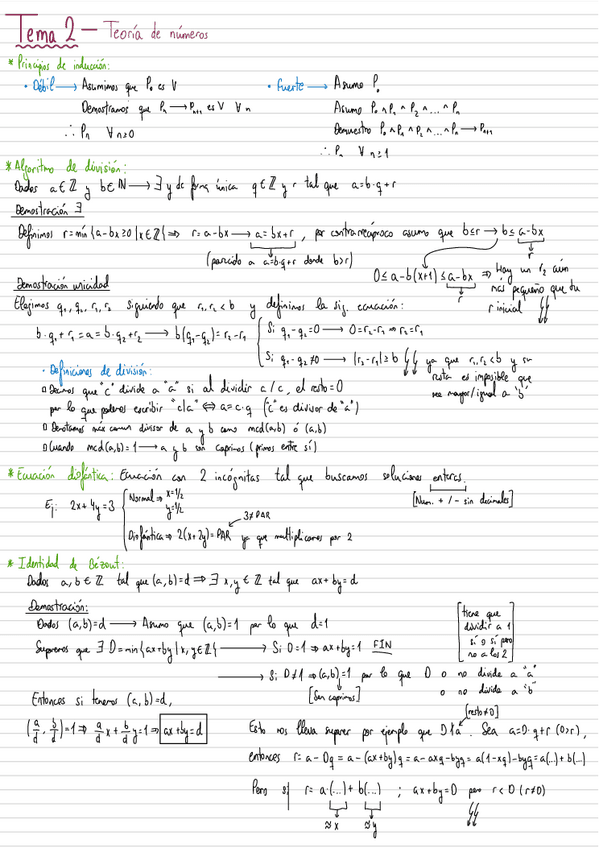 Tema 2 — Teoría de números
* Principios de inducción:
· Débil ⟶ Asumimos que P₀ es V
Demostramos que Pₙ ⟶ Pₙ₊₁ es V ∀ n
∴ Pₙ ∀ n≥0
· Fuerte ⟶ Asumo P₀
Asumo P₀ ∧ P₁ ∧ P₂ ∧ ... ∧ Pₙ
Demuestro P₀ ∧ P₁ ∧ P₂ ∧ ... ∧ Pₙ ⟶ Pₙ₊₁
∴ Pₙ ∀ n≥1
* Algoritmo de división:
Dados a ∈ ℤ y b ∈ ℕ ⟶ ∃ y de forma única q ∈ ℤ y r tal que a=b·q+r
Demostración ∃
Definimos r=min {a-bx≥0 | x∈ℤ} ⇒ r=a-bx ⟶ a=bx+r , por contrarecíproco asumo que b≤r ⟶ b≤a-bx
r
(parecido a a=b·q+r donde b>r)
0≤a-b(x+1)≤a-bx ⇒ Hay un r₂ aún
r
más pequeño que tu
r inicial
Demostración unicidad
Elegimos q₁, q₂, r₁, r₂ siguiendo que r₁,r₂<b y definimos la sig. ecuación:
b·q₁+r₁=a=b·q₂+r₂ ⟶ b(q₁-q₂)=r₂-r₁
Si q₁-q₂=0 ⟶ 0=r₂-r₁ ⇒ r₂=r₁
Si q₁-q₂≠0 ⟶ |r₂-r₁|≥b ya que r₁,r₂<b y su
resta es imposible que
sea mayor/igual a "b"
· Definiciones de división:
Decimos que "c" divide a "a" si al dividir a/c, el resto=0
por lo que podemos escribir "c|a" ⇔ a=c·q ("c" es divisor de "a")
Denotamos máx común divisor de a y b como mcd(a,b) ó (a,b)
Cuando mcd(a,b)=1 ⟶ a y b son coprimos (primos entre sí)
* Ecuación diofántica: Ecuación con 2 incógnitas tal que buscamos soluciones enteras.
[Num. +/- sin decimales]
Ej: 2x+4y=3
Normal ⇒ x=1/2
y=1/2
3≠PAR
Diofántica ⇒ 2(x+2y)=PAR ya que multiplicamos por 2
* Identidad de Bézout:
Dados a,b ∈ ℤ tal que (a,b)=d ⇒ ∃ x,y ∈ ℤ tal que ax+by=d
Demostración:
Dados (a,b)=d ⟶ Asumo que (a,b)=1 por lo que d=1
Suponemos que ∃ D=min{ax+by | x,y∈ℤ} ⟶ Si D=1 ⇒ ax+by=1 FIN
[tiene que
dividir a 1
sí o sí pero
no a los 2]
⟶ Si D≠1 ⇒ (a,b)=1 por lo que D o no divide a "a"
[Son coprimos]
o no divide a "b"
Entonces si tenemos (a,b)=d,
(a/d, b/d)=1 ⇒ a/d x + b/d y=1 ⇒ ax+by=d
[resto≠0]
Esto nos lleva suponer por ejemplo que D∤a. Sea a=D·q+r (D>r),
entonces r=a-Dq=a-(ax+by)q=a-axq-byq=a(1-xq)-byq=a(...)+b(...)
Pero si r=a·(...)+b(...) ; ax+by=D pero r<D (r≠0)
≈x ≈y